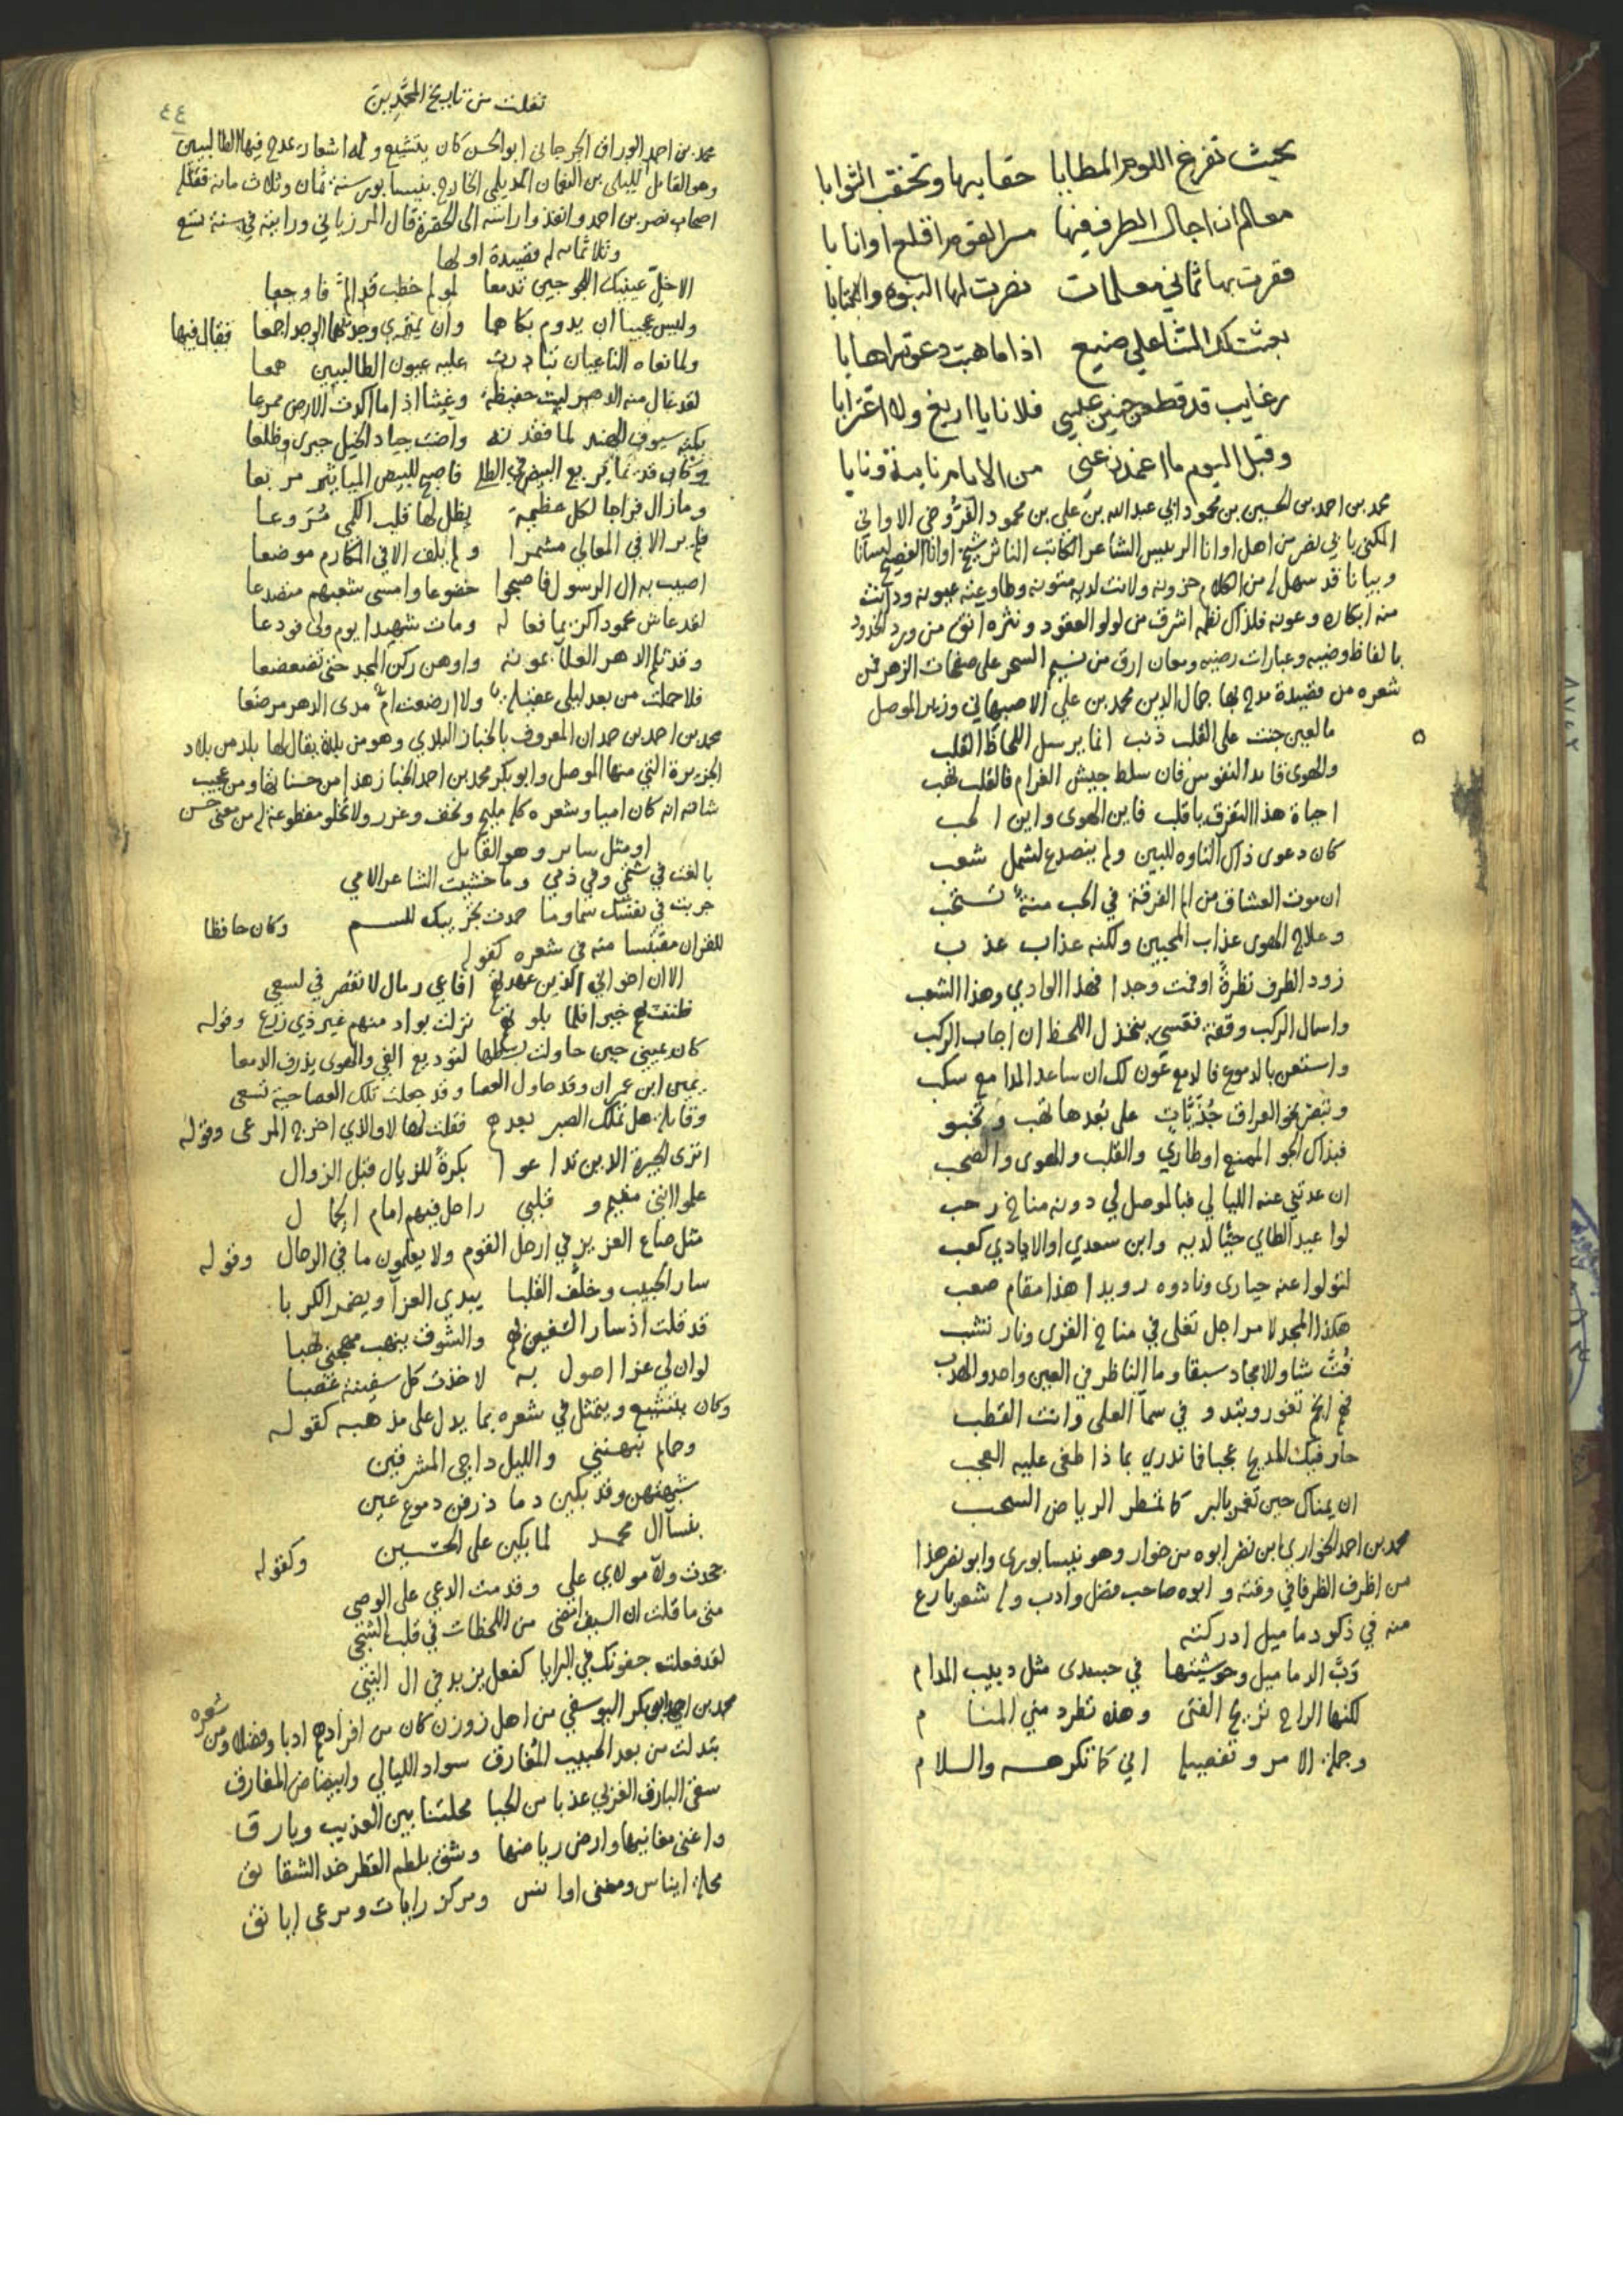 بحيث تفرغ اللوم المطايا حقايبها وتحتقب الثوابا
معالم ان اجال الطرف فيها مسر القوم اقلع او انابا
فقرت بها ثماني معلمات نصرت لها النبوه والكتابا
بعثت لك الثنا على صنيع اذا ما هبت دعوته اهابا
رغايب قد قطعن حنين عيسي فلا نايا اريغ ولا اغترابا
وقبل اليوم ما اغمدن عني من الايام نايبة ونابا
محمد بن احمد بن الحسين بن محمود ابي عبدالله بن علي بن محمود الفروخي الاواني
المكنى بابي نصر من اهل اوانا الرييس الشاعر الكاتب الناثر شيخ اوانا الفصيح لسانا
وبيانا قد سهل له من الكلام حزونه ولانت لديه متونه وطاوعته عيونه ودانت
منه ابكاره وعونه فلذاك نظمه اشرق من لولو العقود ونثره انق من ورد الخدود
بالفاظ وضييه وعبارات رضيه ومعان ارق من نسيم السحر على صفحات الزهر فمن
شعره من قصيدة مدح بها جمال الدين محمد بن علي الاصبهاني وزير الموصل
ما لعين جنت على القلب ذنب انما يرسل اللحاظ القلب
والهوى قايد النفوس فان سلط جيش الغرام فالقلب نهب
احياة هذا التفرق يا قلب فاين الهوى واين الحب
كان دعوى ذاك التاوه للبين ولم ينصدع لشمل شعب
ان موت العشاق من الم الفرقة في الحب منة تستحب
وعلاج الهوى عذاب المحبين ولكنه عذاب عذب
زود الطرف نظرة او فمت وجدا فهذا الوادي وهذا الشعب
واسال الركب وقفة فقسي يخذل اللحظ ان اجاب الركب
واستعن بالدموع فالدمع عون لك ان ساعد المدامع سكب
وتبصر نحو العراق جذيات على بعدها تهب وتخبو
فبذاك الجو الممنع اوطاري والقلب والهوى والصحب
ان عدتني عنه الليالي فبالموصل لي دونه مناخ رحب
لوا عبيد الطاي حيا لديه وابن سعدي او الايادي كعب
لتولوا عنه حيارى ونادوه رويدا هذا مقام صعب
هكذا المجد لا مراجل تغلى في مناخ القرى ونار تشب
فت شاو الامجاد سبقا وما الناظر في العين واحد والهدب
هم انجم تغور وتبدو في سما العلى وانت القطب
حار فيك المديح عجبا فما ندري بما ذا طغى عليه العجب
ان يمناك حين تغمر بالبر كما تمطر الرياض السحب
محمد بن احمد الخواري ابن نصر ابوه من خوار وهو نيسابوري وابو نصر هذا
من اظرف الظرفا في وقته وابوه صاحب فضل وادب وله شعر بارع
منه في ذكر دماميل ادركته
دب الدماميل وحوشيتها في جسدي مثل دبيب المدام
لكنها الراح تريح الفتى وهذه تطرد مني المنام
وجملة الامر وتفصيله اني كما تكرهه والسلام
نقلت من تاريخ المحمدين
٤٤
محمد بن احمد الوراق الجرجاني ابو الحسن كان يتشيع وله اشعار يمدح فيها الطالبيين
وهو القايل لليلى بن النعمان الديلمي الخارج بنيسابور سنة ثمان وثلاث مائة فقتله
اصحاب نصر بن احمد وانفذوا راسه الى الحضرة قال المرزباني ورايته في سنة تسع
وثلاثمائه له قصيدة اولها
الا خل عينيك اللجوجين تدمعا لمولم خطب قد الم فاوجعا
وليس عجيبا ان يدوم بكاهما وان يمتري وجدهما الوجد اجمعا فقال فيها
ولما نعاه الناعيان تبادرت عليه عيون الطالبيين همعا
لقد غال منه الدهر ليث حفيظة وغيثا اذا ما اكدت الارض ممرعا
بكته سيوف الهند لما فقدنه واضت جياد الخيل حسرى وظلعا
وكان قديما يرتع البيض في الطلى فاصبح للبيض المباتير مرتعا
وما زال فراجا لكل عظيمة يظل لها قلب الكمي مروعا
فلم ير الا في المعالي مشمرا ولم يلف الا في المكارم موضعا
اصيب به ال الرسول فاصبحوا خضوعا وامسى شعبهم متصدعا
لقد عاش محمودا كريما فعاله ومات شهيدا يوم ولى فودعا
وقد ثلم الدهر العلا بموته واوهن ركن المجد حتى تضعضعا
فلا حملت من بعد ليلى عقيلة ولا ارضعت ام مدى الدهر مرضعا
محمد بن احمد بن حمدان المعروف بالخباز البلدي وهو من بلدة يقال لها بلد من بلاد
الجزيرة التي منها الموصل وابو بكر محمد بن احمد الخباز هذا من حسناتها ومن عجيب
شانه انه كان اميا وشعره كله مليح وتحف وغرر ولا تخلو مقطوعة له من معنى حسن
او مثل ساير وهو القايل
بالغت في شتمي وفي ذمي وما خشيت الشاعر الامي
جربت في نفسك سما وما حمدت تجريبك للسم وكان حافظا
للقران مقتبسا منه في شعره كقوله
الا ان اخواني الذين عهدتهم افاعي رمال لا تقصر في لسعي
ظننت بهم خيرا فلما بلوتهم نزلت بواد منهم غير ذي زرع وقوله
كان عيني حين حاولت بسطها لتوديع الفي والهوى يذرف الدمعا
يمين ابن عمران وقد حاول العصا وقد جعلت تلك العصا حية تسعى
وقايلة هل تملك الصبر بعدهم فقلت لها لا والذي اخرج المرعى وقوله
اترى الجيرة الذين تداعوا بكرة للزيال قبل الزوال
علموا انني مقيم وقلبي راحل فيهم امام الجمال
مثل صاع العزيز في ارحل القوم ولا يعلمون ما في الرحال وقوله
سار الحبيب وخلف القلبا يبدي العزا ويضمر الكربا
قد قلت اذ سار السفين بهم والشوق ينهب مهجتي نهبا
لو ان لي عزا اصول به لاخذت كل سفينة غصبا
وكان يتشيع ويتمثل في شعره بما يدل على مذهبه كقوله
وحمام نبهنني والليل داجي المشرقين
شبهتهن وقد بكين وما ذرفن دموع عين
بنسا ال محمد لما بكين على الحسين
جحدت ولا مولاي علي وقدمت الدعي على الوصي وكقوله
متى ما قلت ان السيف امضى من اللحظات في قلب الشجي
لقد فعلت جفونك في البرايا كفعل يزيد في ال النبي
محمد بن احمد ابو بكر اليوسفي من اهل زوزن كان من افرادهم ادبا وفضلا ومن شعره
بتدلت من بعد الحبيب المفارق سواد الليالي وابيضاض المفارق
سقى البارق الغربي عذبا من الحيا محلتنا بين العذيب وبارق
واغنى مغانيها وارض رياضها وشق بلطم القطر خد الشقايق
محلة ايناس ومغنى اوانس ومركز رايات ومرعى ايانق